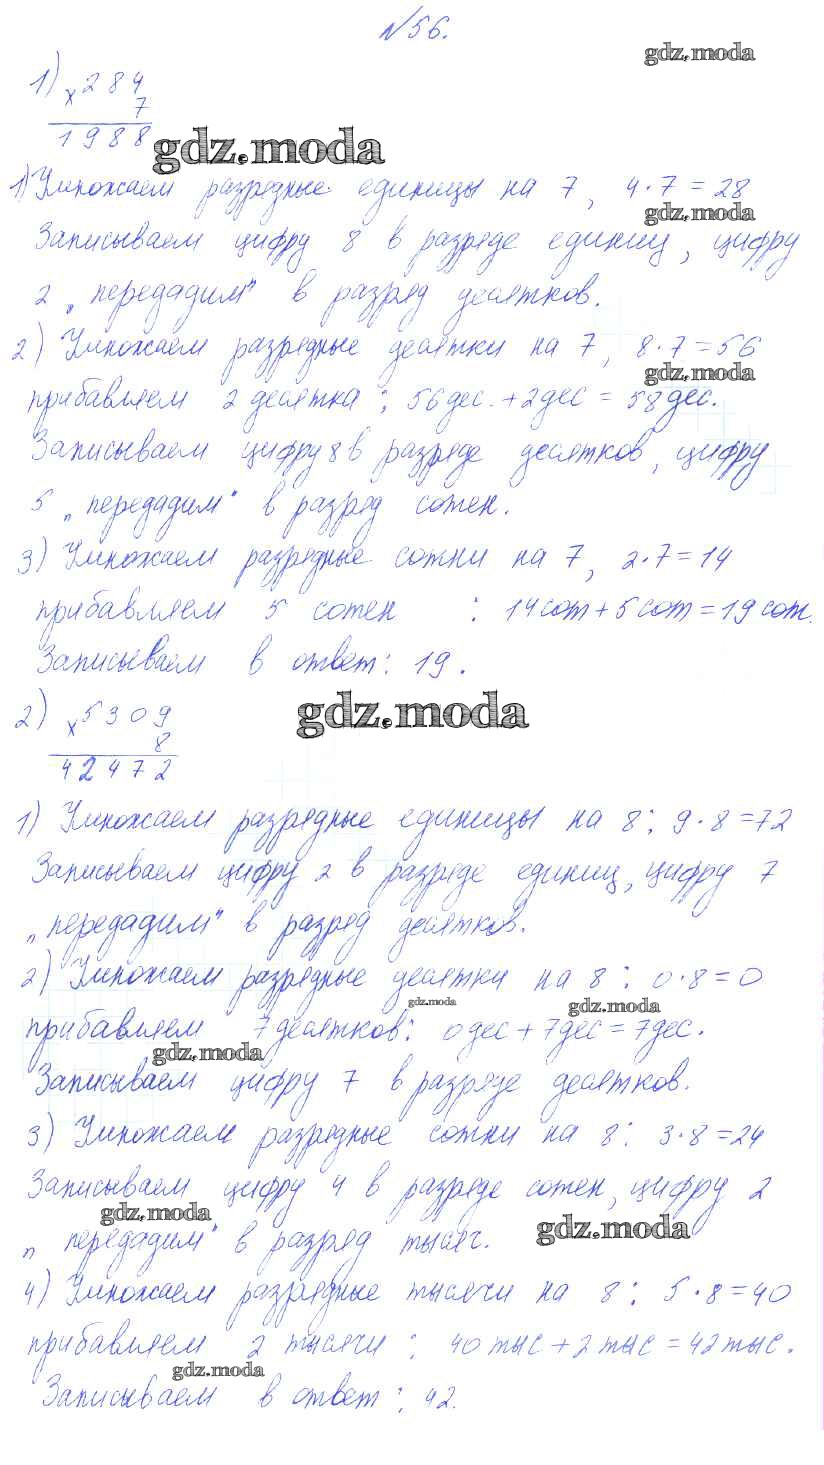 №56.
gdz.moda
1) × 284
7
1988
gdz.moda
1) Умножаем разрядные единицы на 7, 4·7=28
gdz.moda
Записываем цифру 8 в разряде единиц, цифру
2 „передадим" в разряд десятков.
2) Умножаем разрядные десятки на 7, 8·7=56
gdz.moda
прибавляем 2 десятка: 56дес.+2дес=58дес.
Записываем цифру 8 в разряде десятков, цифру
5 „передадим" в разряд сотен.
3) Умножаем разрядные сотни на 7, 2·7=14
прибавляем 5 сотен : 14сот+5сот=19сот.
Записываем в ответ: 19.
2) × 5309
8
42472
gdz.moda
1) Умножаем разрядные единицы на 8: 9·8=72
Записываем цифру 2 в разряде единиц, цифру 7
„передадим" в разряд десятков.
2) Умножаем разрядные десятки на 8: 0·8=0
gdz.moda
gdz.moda
прибавляем 7 десятков: 0дес+7дес=7дес.
gdz.moda
Записываем цифру 7 в разряде десятков.
3) Умножаем разрядные сотни на 8: 3·8=24
Записываем цифру 4 в разряде сотен, цифру 2
gdz.moda
gdz.moda
„передадим" в разряд тысяч.
4) Умножаем разрядные тысячи на 8: 5·8=40
прибавляем 2 тысячи: 40тыс+2тыс=42тыс.
gdz.moda
Записываем в ответ: 42.